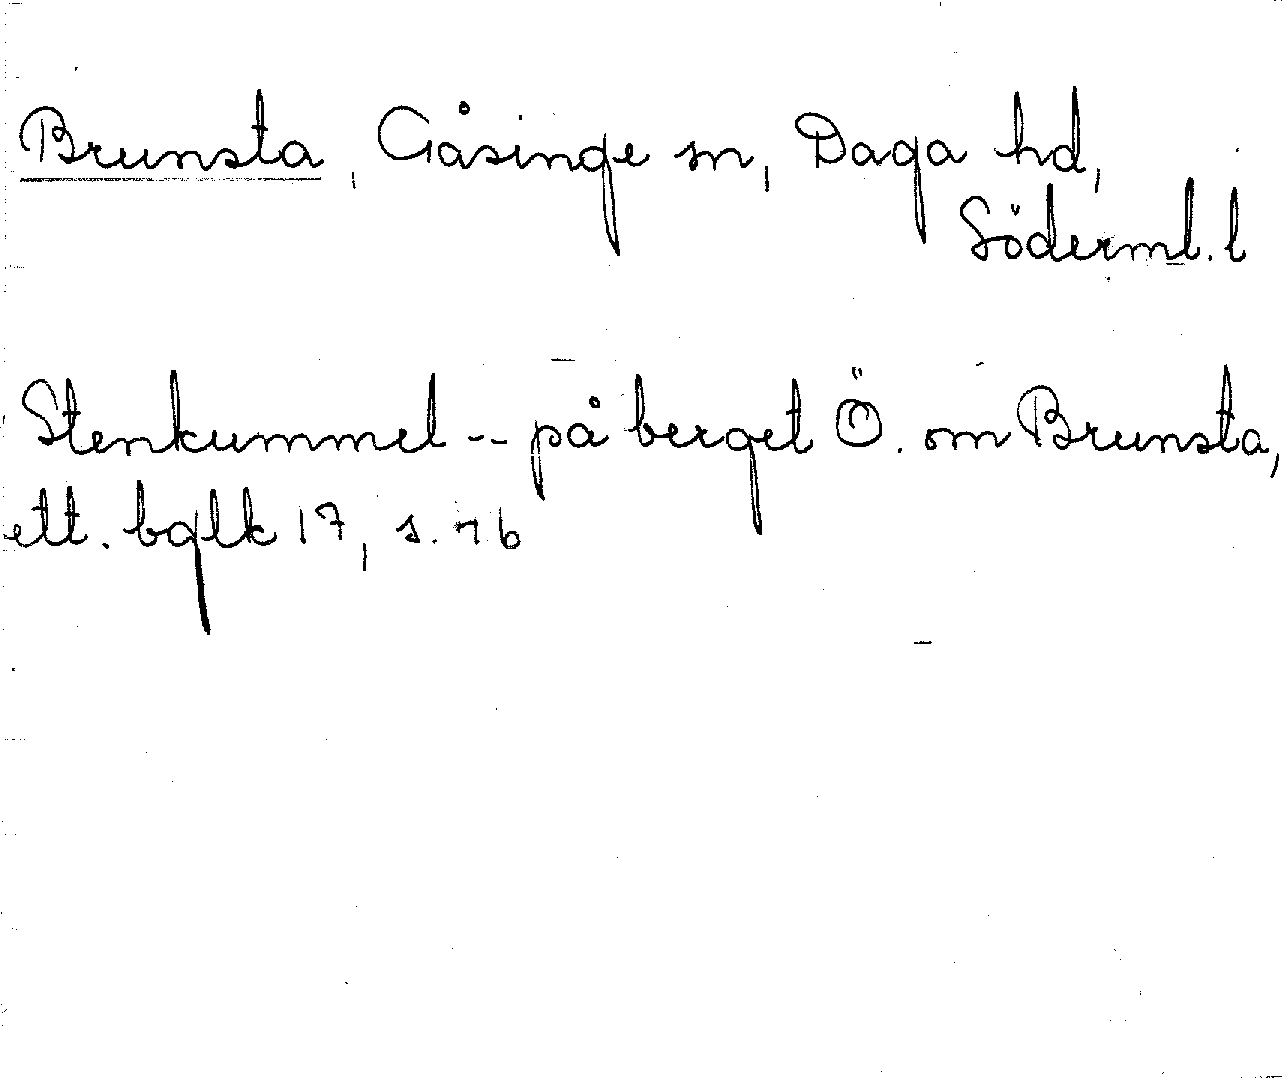 Brunsta, Gåsinge sn, Daga hd,
Söderml. l
Stenkummel -- på berget Ö. om Brunsta,
ett. bglk 17, s. 76